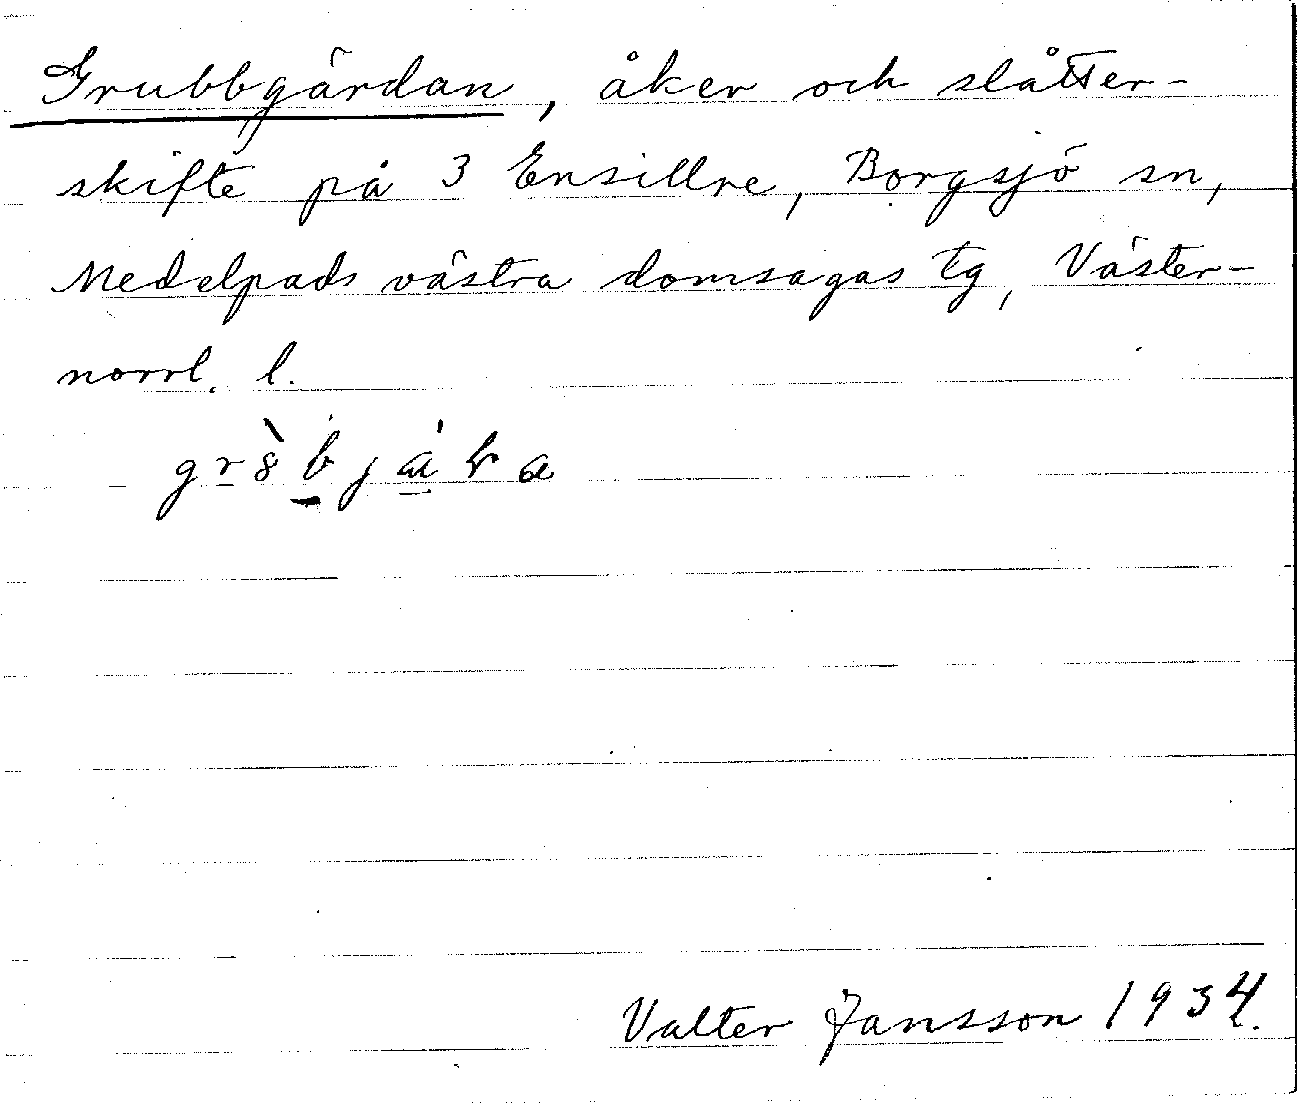 Grubbgärdan, åker och slåtter-
skifte på 3 Ensillre, Borgsjö sn,
Medelpads västra domsagas tg, Väster-
norrl. l.
Valter Jansson 1934.